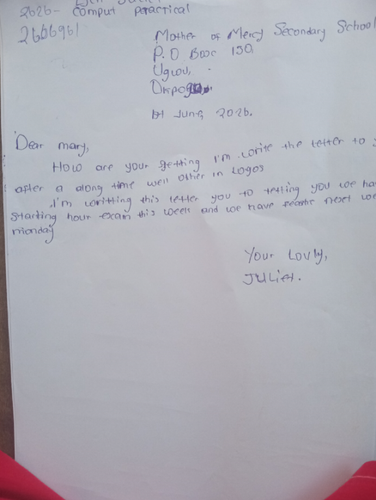 2026- Comput practical
2666961
Mother of Mercy Secondary School
P.O Box 150
Ugwu,
Okpoga
1st June, 2026.
Dear mary,
How are your getting I'm write the letter to
after a along time well other in Lagos
I'm writting this letter you to telling you we ha
starting hour exam this week and we have next we
monday
Your Lovly,
Juliet.